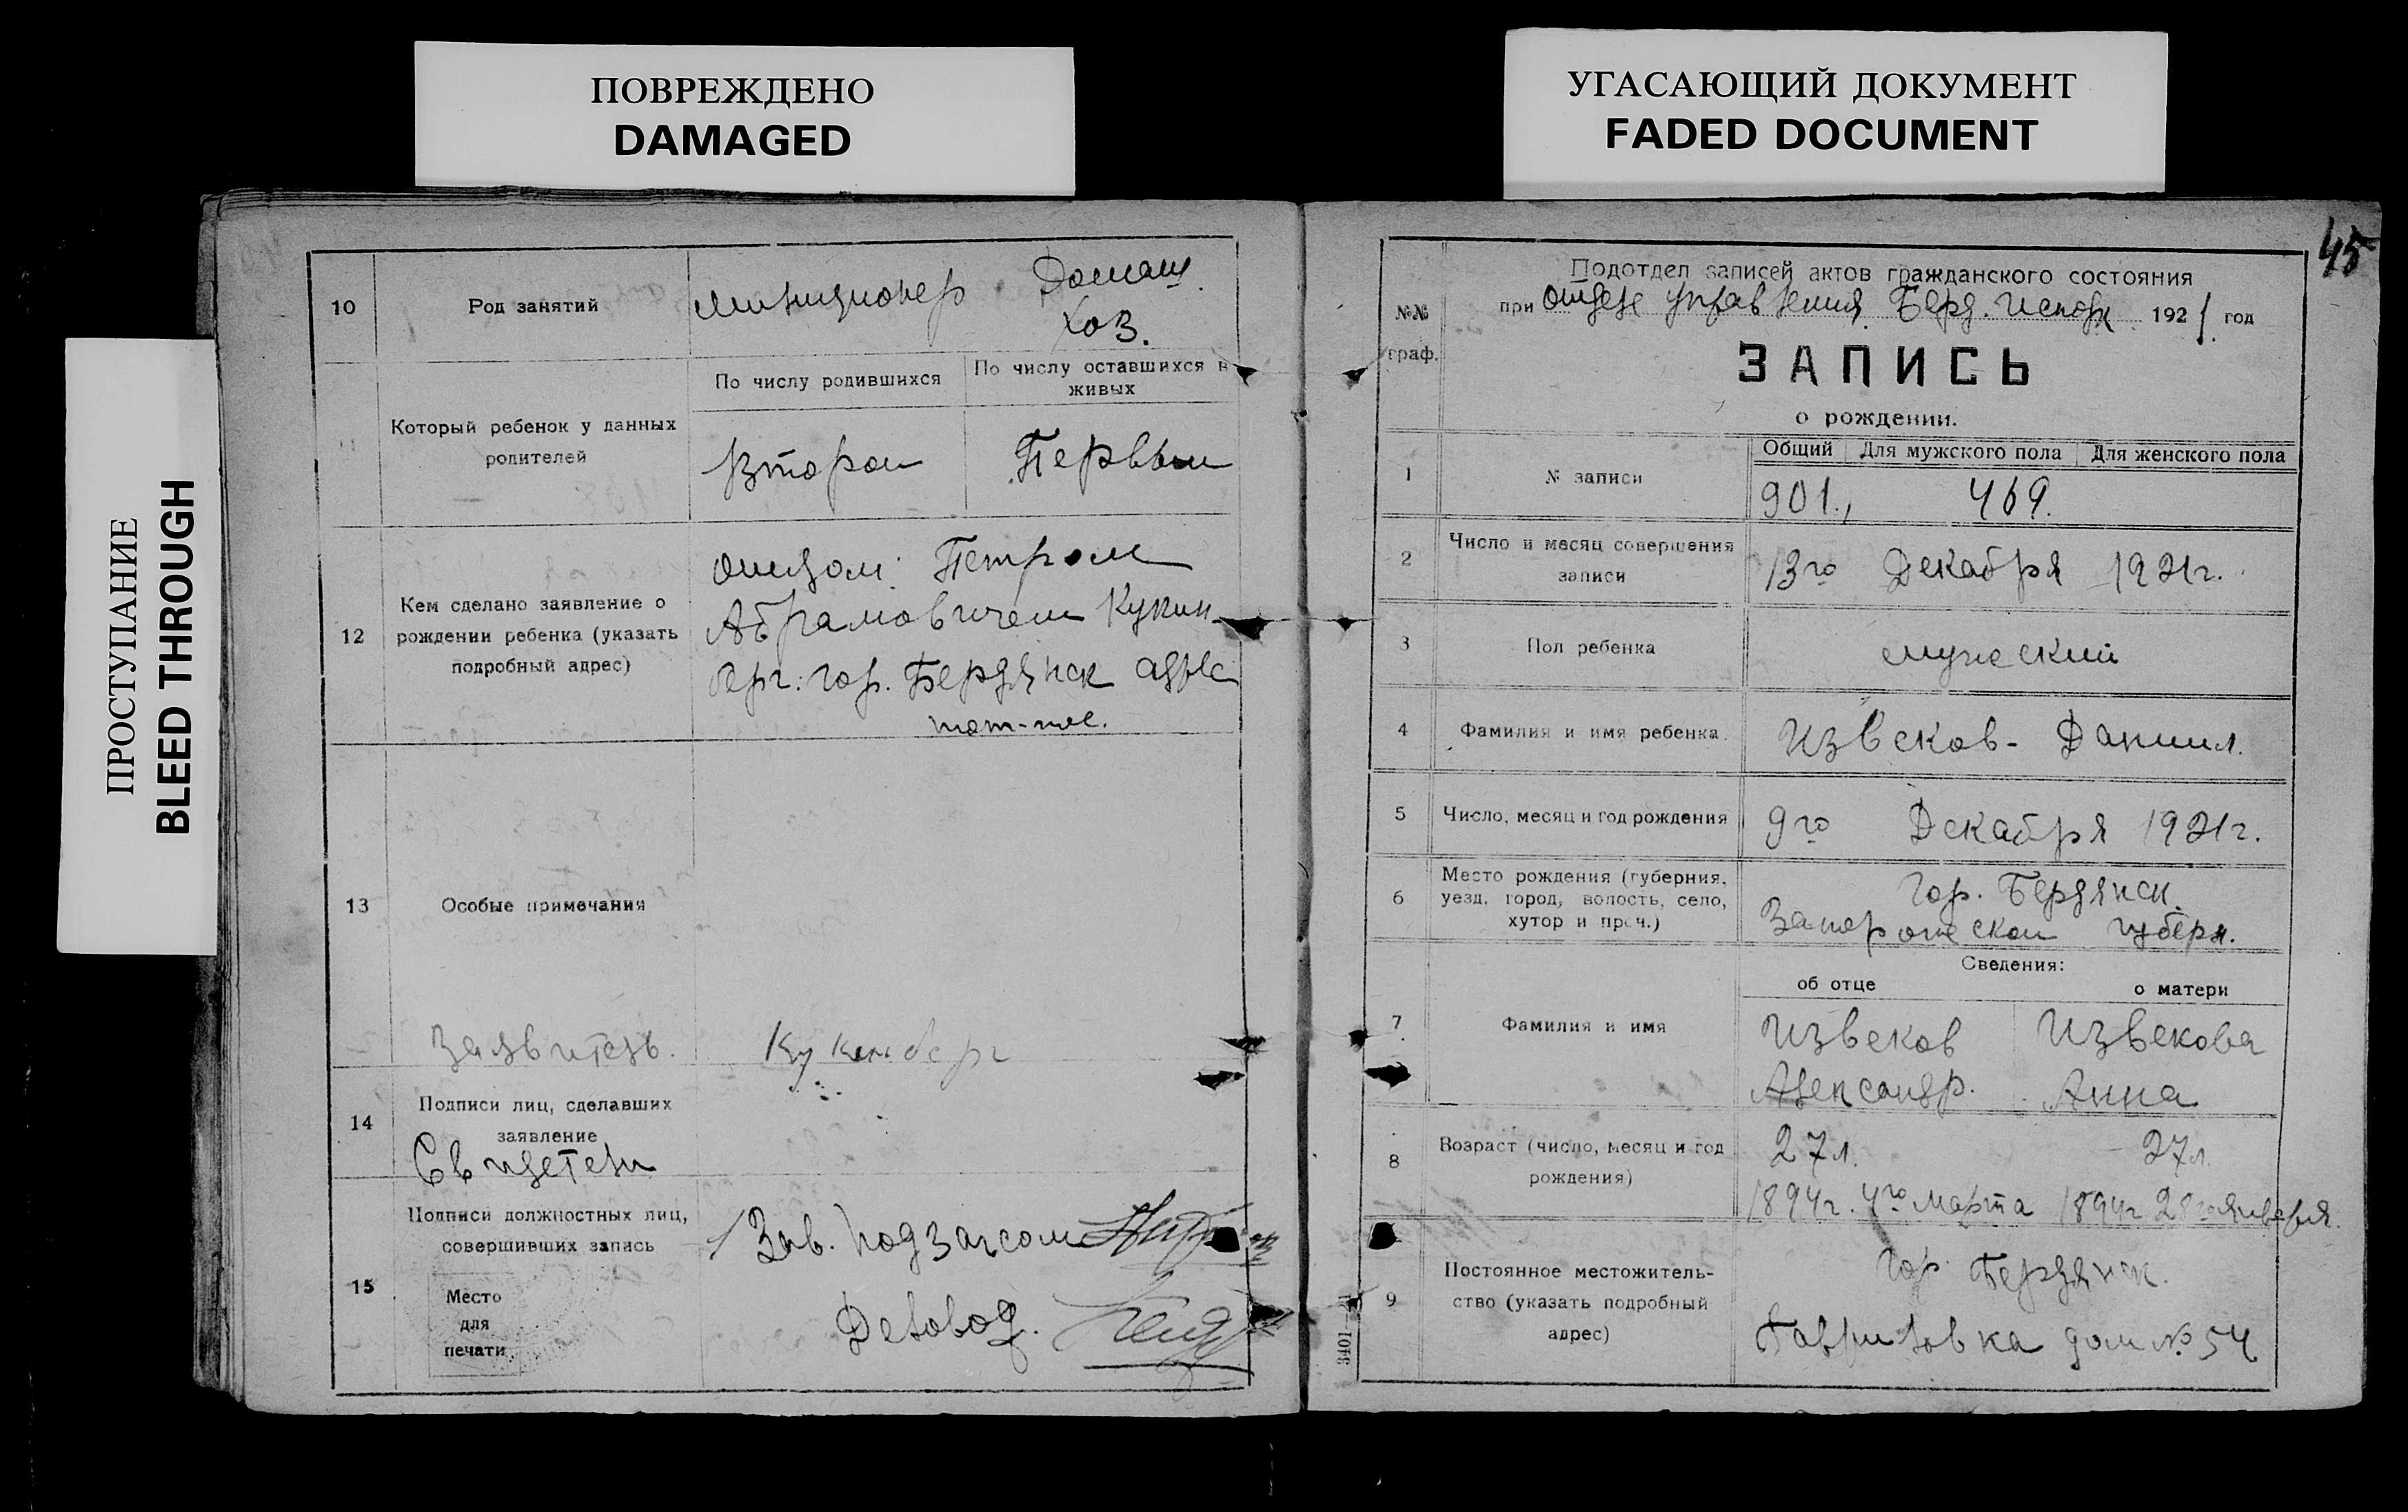 ПОВРЕЖДЕНО
DAMAGED
УГАСАЮЩИЙ ДОКУМЕНТ
FADED DOCUMENT
ПРОСТУПАНИЕ
BLEED THROUGH
10
Род занятий
милиционер
Домаш.
хоз.
11
Который ребенок у данных
родителей
По числу родившихся
По числу оставшихся в
живых
Второй
Первый
12
Кем сделано заявление о
рождении ребенка (указать
подробный адрес)
отцом: Петром
Абрамовичем Кукен-
берг: гор. Бердянск адрес
тот-же.
13
Особые примечания
Заявитель.
Кукенберг
14
Подписи лиц, сделавших
заявление
Свидетели
15
Подписи должностных лиц,
совершивших запись
Место
для
печати
Зав. подзагсом
Деловод.
45
№№
граф.
Подотдел записей актов гражданского состояния
при отделе управления Берд. Исполк. 1921 год
ЗАПИСЬ
о рождении.
1
№ записи
Общий
Для мужского пола
Для женского пола
901.,
469.
2
Число и месяц совершения
записи
13го Декабря 1921г.
3
Пол ребенка
мужеский
4
Фамилия и имя ребенка.
Извеков- Даниил.
5
Число, месяц и год рождения
9го Декабря 1921г.
6
Место рождения (губерния,
уезд, город, волость, село,
хутор и проч.)
Гор. Бердянск.
Запорожской губерн.
7
Фамилия и имя
Сведения:
об отце
о матери
Извеков
Александр.
Извекова
Анна
8
Возраст (число, месяц и год
рождения)
27л.
27л.
1894г. 4го марта
1894г 28го января.
9
Постоянное местожитель-
ство (указать подробный
адрес)
Гор. Бердянск.
Гавриловка дом № 54
3401—21